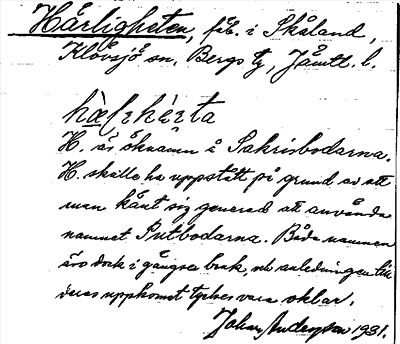 Härligheten, fäb. i Skåland,
Klövsjö sn, Bergs tg, Jämtl. l.
H. är öknamn å Sakrisbodarna.
H. skulle ha uppstått på grund av att
man känt sig generad att använda
namnet Putbodarna. Båda namnen
äro dock i gängse bruk, och anledningen till
deras uppkomst tyckes vara oklar.
Johan Anderson 1931.